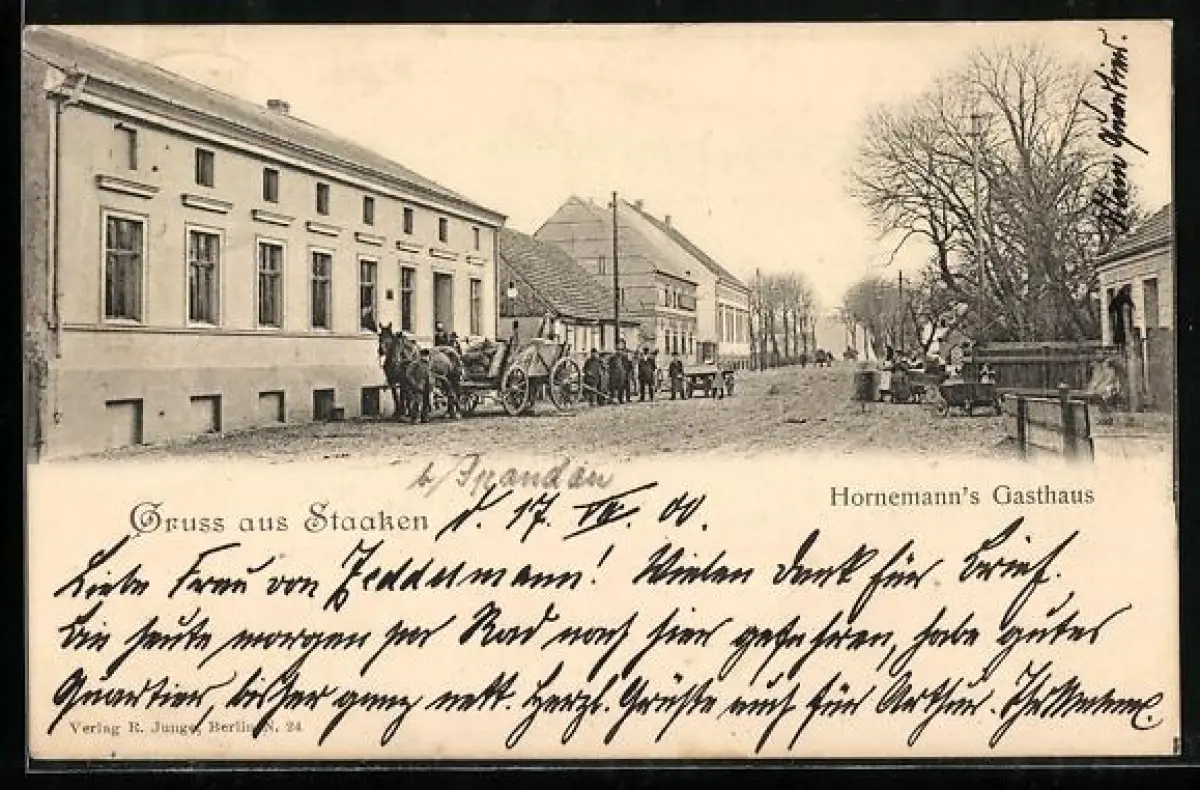 Mein Quartier.
b/Spandau
Gruss aus Staaken d. 17. IV. 00.
Hornemann's Gasthaus
Liebe Frau von Zeddelmann! Vielen Dank für Brief.
Bin heute morgen per Rad nach hier gefahren, habe gutes
Quartier, bisher ganz nett. Herzl. Grüße auch für Arthur. Ihr
Verlag R. Junge, Berlin N. 24